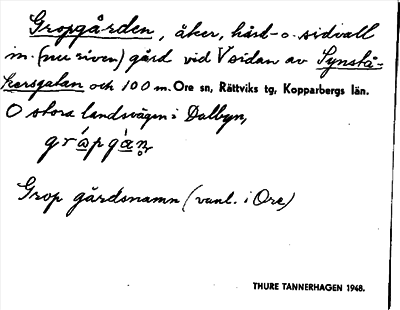 Gropgården, åker, hård- o. sidvall
m. (nu riven) gård vid V sidan av Synståkersgatan och 100 m. Ore sn, Rättviks tg, Kopparbergs län.
O stora landsvägen i Dalbyn,
Grop gårdsnamn (vanl. i Ore)
THURE TANNERHAGEN 1948.